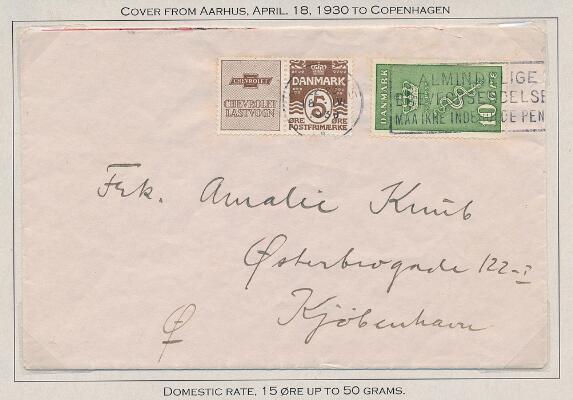 COVER FROM AARHUS, APRIL. 18, 1930 TO COPENHAGEN
CHEVROLET
CHEVROLET
LASTVOGN
DANMARK
5
ØRE ØRE
POSTFRIMÆRKE
DANMARK
10
ALMINDELIGE
MAA IKKE INDE PEN
Frk. Amalie Knub
Østerbrogade 122-I
Kjøbenhavn
DOMESTIC RATE, 15 ØRE UP TO 50 GRAMS.